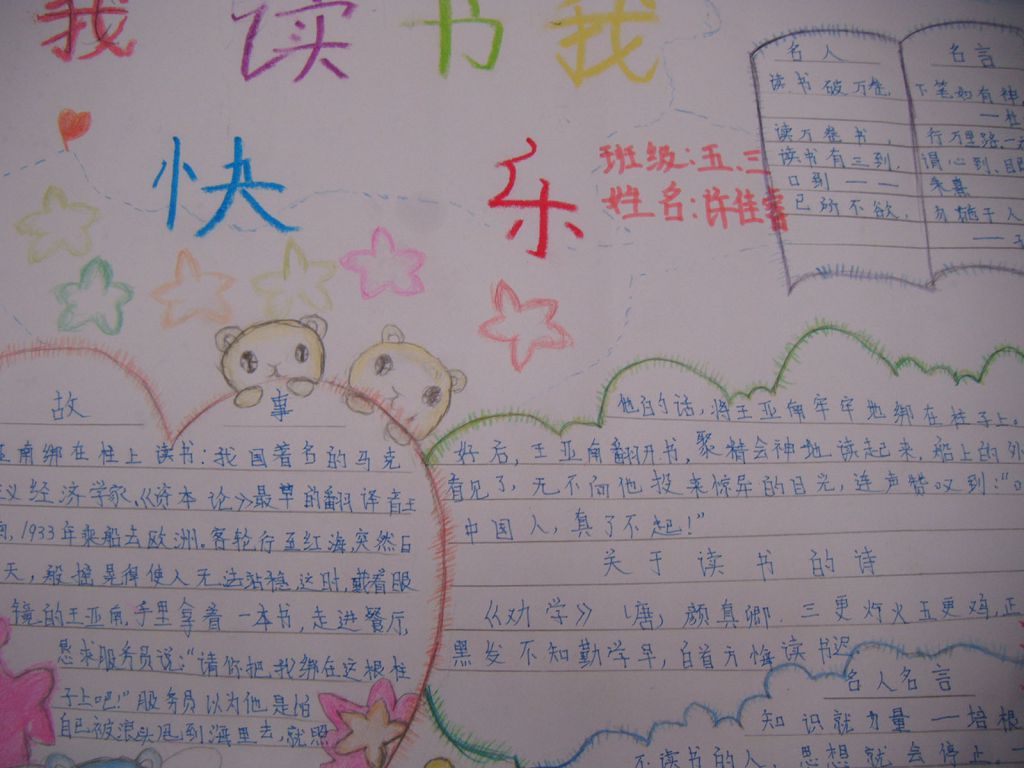 我读书我
快乐
班级:五.三
姓名:许佳睿
名人 名言
读书破万卷, 下笔如有神,
——杜
读万卷书, 行万里路,
读书有三到, 谓心到,
口到—— 朱熹
己所不欲, 勿施于人
——
故事
南绑在柱上读书:我国著名的马克
义经济学家、《资本论》最早的翻译者王
1933年乘船去欧洲。客轮行至红海,突然
天,般摇晃得使人无法站稳,这时,戴着眼
镜的王亚南,手里拿着一本书,走进餐厅,
恳求服务员说:“请你把我绑在这根柱
子上吧!”服务员以为他是怕
自己被浪头甩到海里去,就照
他的话,将王亚南牢牢地绑在柱子上。
好后,王亚南翻开书,聚精会神地读起来,船上的外
看见了,无不向他投来惊异的目光,连声赞叹到:“
中国人,真了不起!”
关于读书的诗
《劝学》(唐)颜真卿.三更灯火五更鸡,正
黑发不知勤学早,白首方悔读书迟
名人名言
知识就力量——培根
不读书的人,思想就会停止.